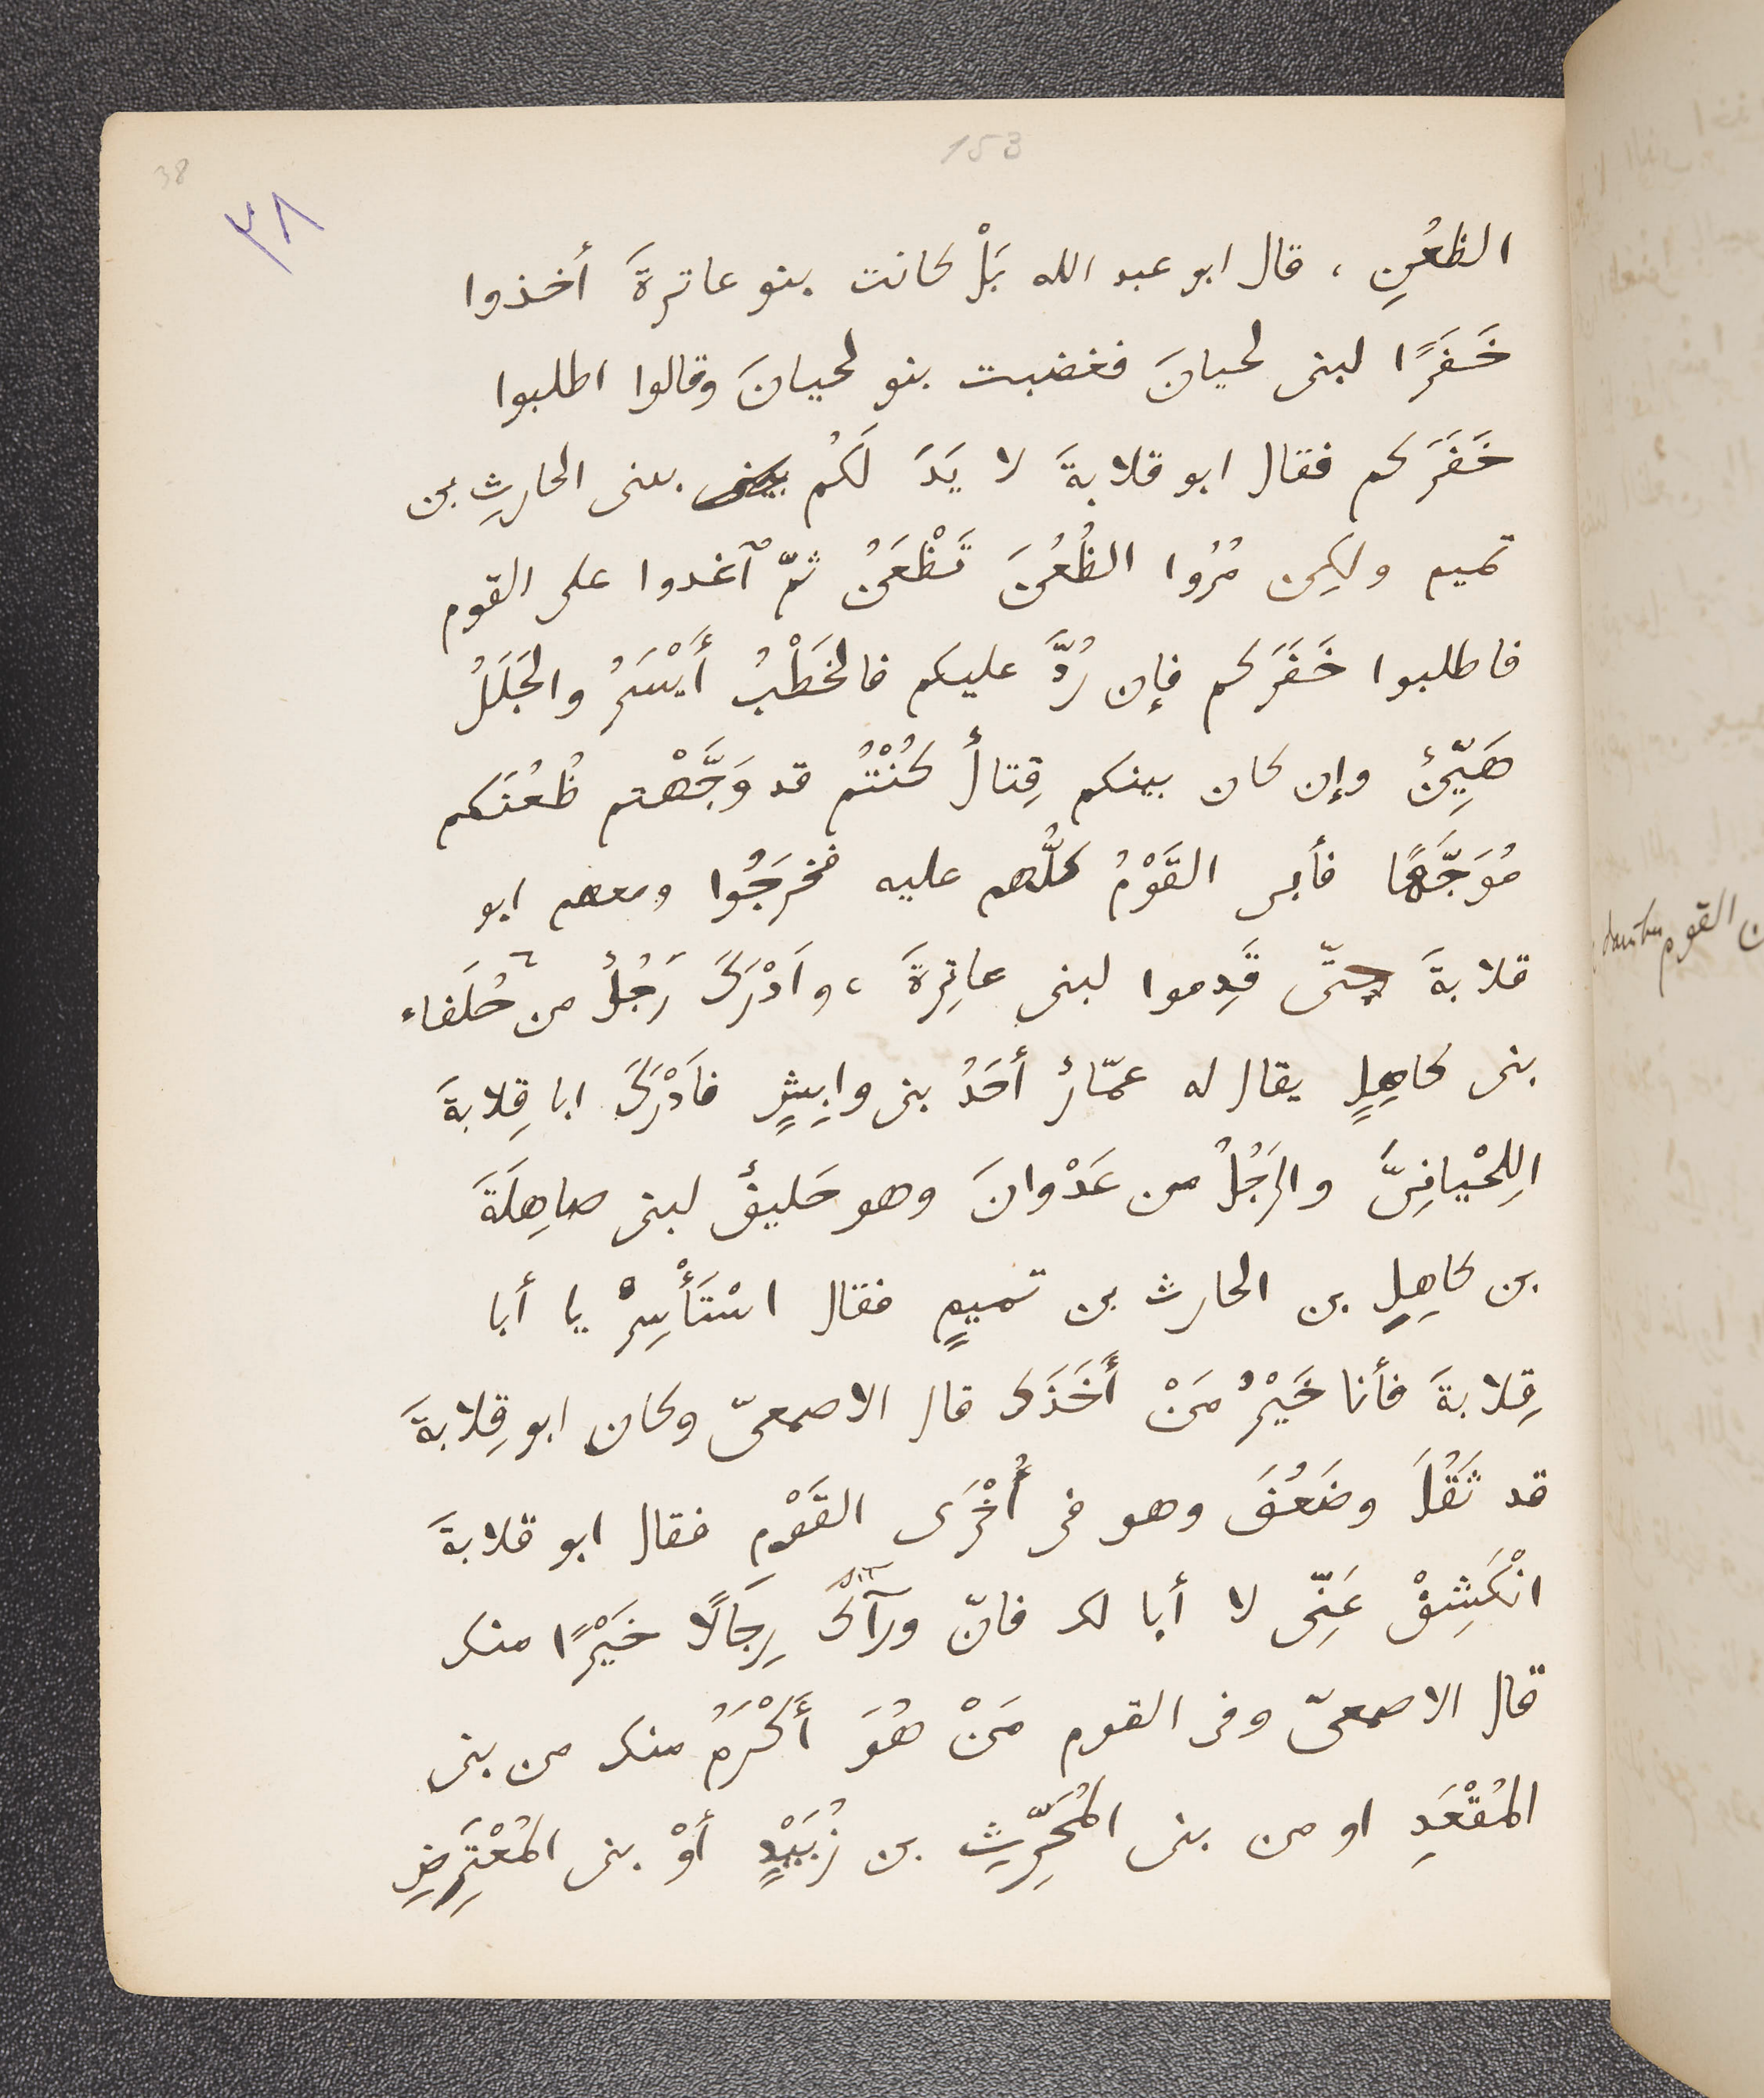 153
38
٣٨
الظعُنِ ، قال ابو عبد الله بَلْ كانت بنو عاترةَ أخذوا
خَفَرًا لبنى لحيانَ فغضبت بنو لحيانَ وقالوا اطلبوا
خَفَرَكم فقال ابو قلابةَ لا يَدَ لَكُم ببنى الحارثِ بن
تميم ولكِن مُرُوا الظُعُنَ تَظْعَنُ ثمّ ٱغدوا على القوم
فاطلبوا خَفَرَكم فإن رُدَّ عليكم فالخَطْبُ أَيْسَرُ والجَلَلُ
هَيِّنٌ وإن كان بينكم قِتالٌ كُنْتُم قد وَجَّهْتم ظُعُنَكم
مُوَجَّهًا فأبى القَوْمُ كلُّهم عليه فخرَجُوا ومعهم ابو
قلابةَ حتّى قَدِموا لبنى عاتِرةَ ، وَادْرَكَ رَجُلٌ من حُلَفاء
بنى كاهِلٍ يقال له عمّارٌ أحَدُ بنى وابِشٍ فاَدْرَكَ ابا قِلابةَ
اللِحْيانِىَّ والرَجُلُ من عَدْوانَ وهو حَليفٌ لبنى صاهِلَةَ
بن كاهِلِ بن الحارث بن تميمٍ فقال اسْتَأْسِرْ يا أبا
قِلابةَ فأنا خَيْرُ مَنْ أَخَذَكَ قال الاصمعىّ وكان ابو قِلابةَ
قد ثَقُلَ وضَعُفَ وهو فى أُخْرَى القَوْمِ فقال ابو قلابةَ
انْكَشِفْ عَنِّى لا أبا لك فانّ ورآكَ رِجَالًا خَيْرًا منك
قال الاصمعىّ وفى القوم مَنْ هُوَ أَكْرَمُ منك من بنى
المُقْعَدِ او من بنى المُحَرِّثِ بن زُبَيْدٍ أوْ بنى المُعْتَرِضِ
ن القوم